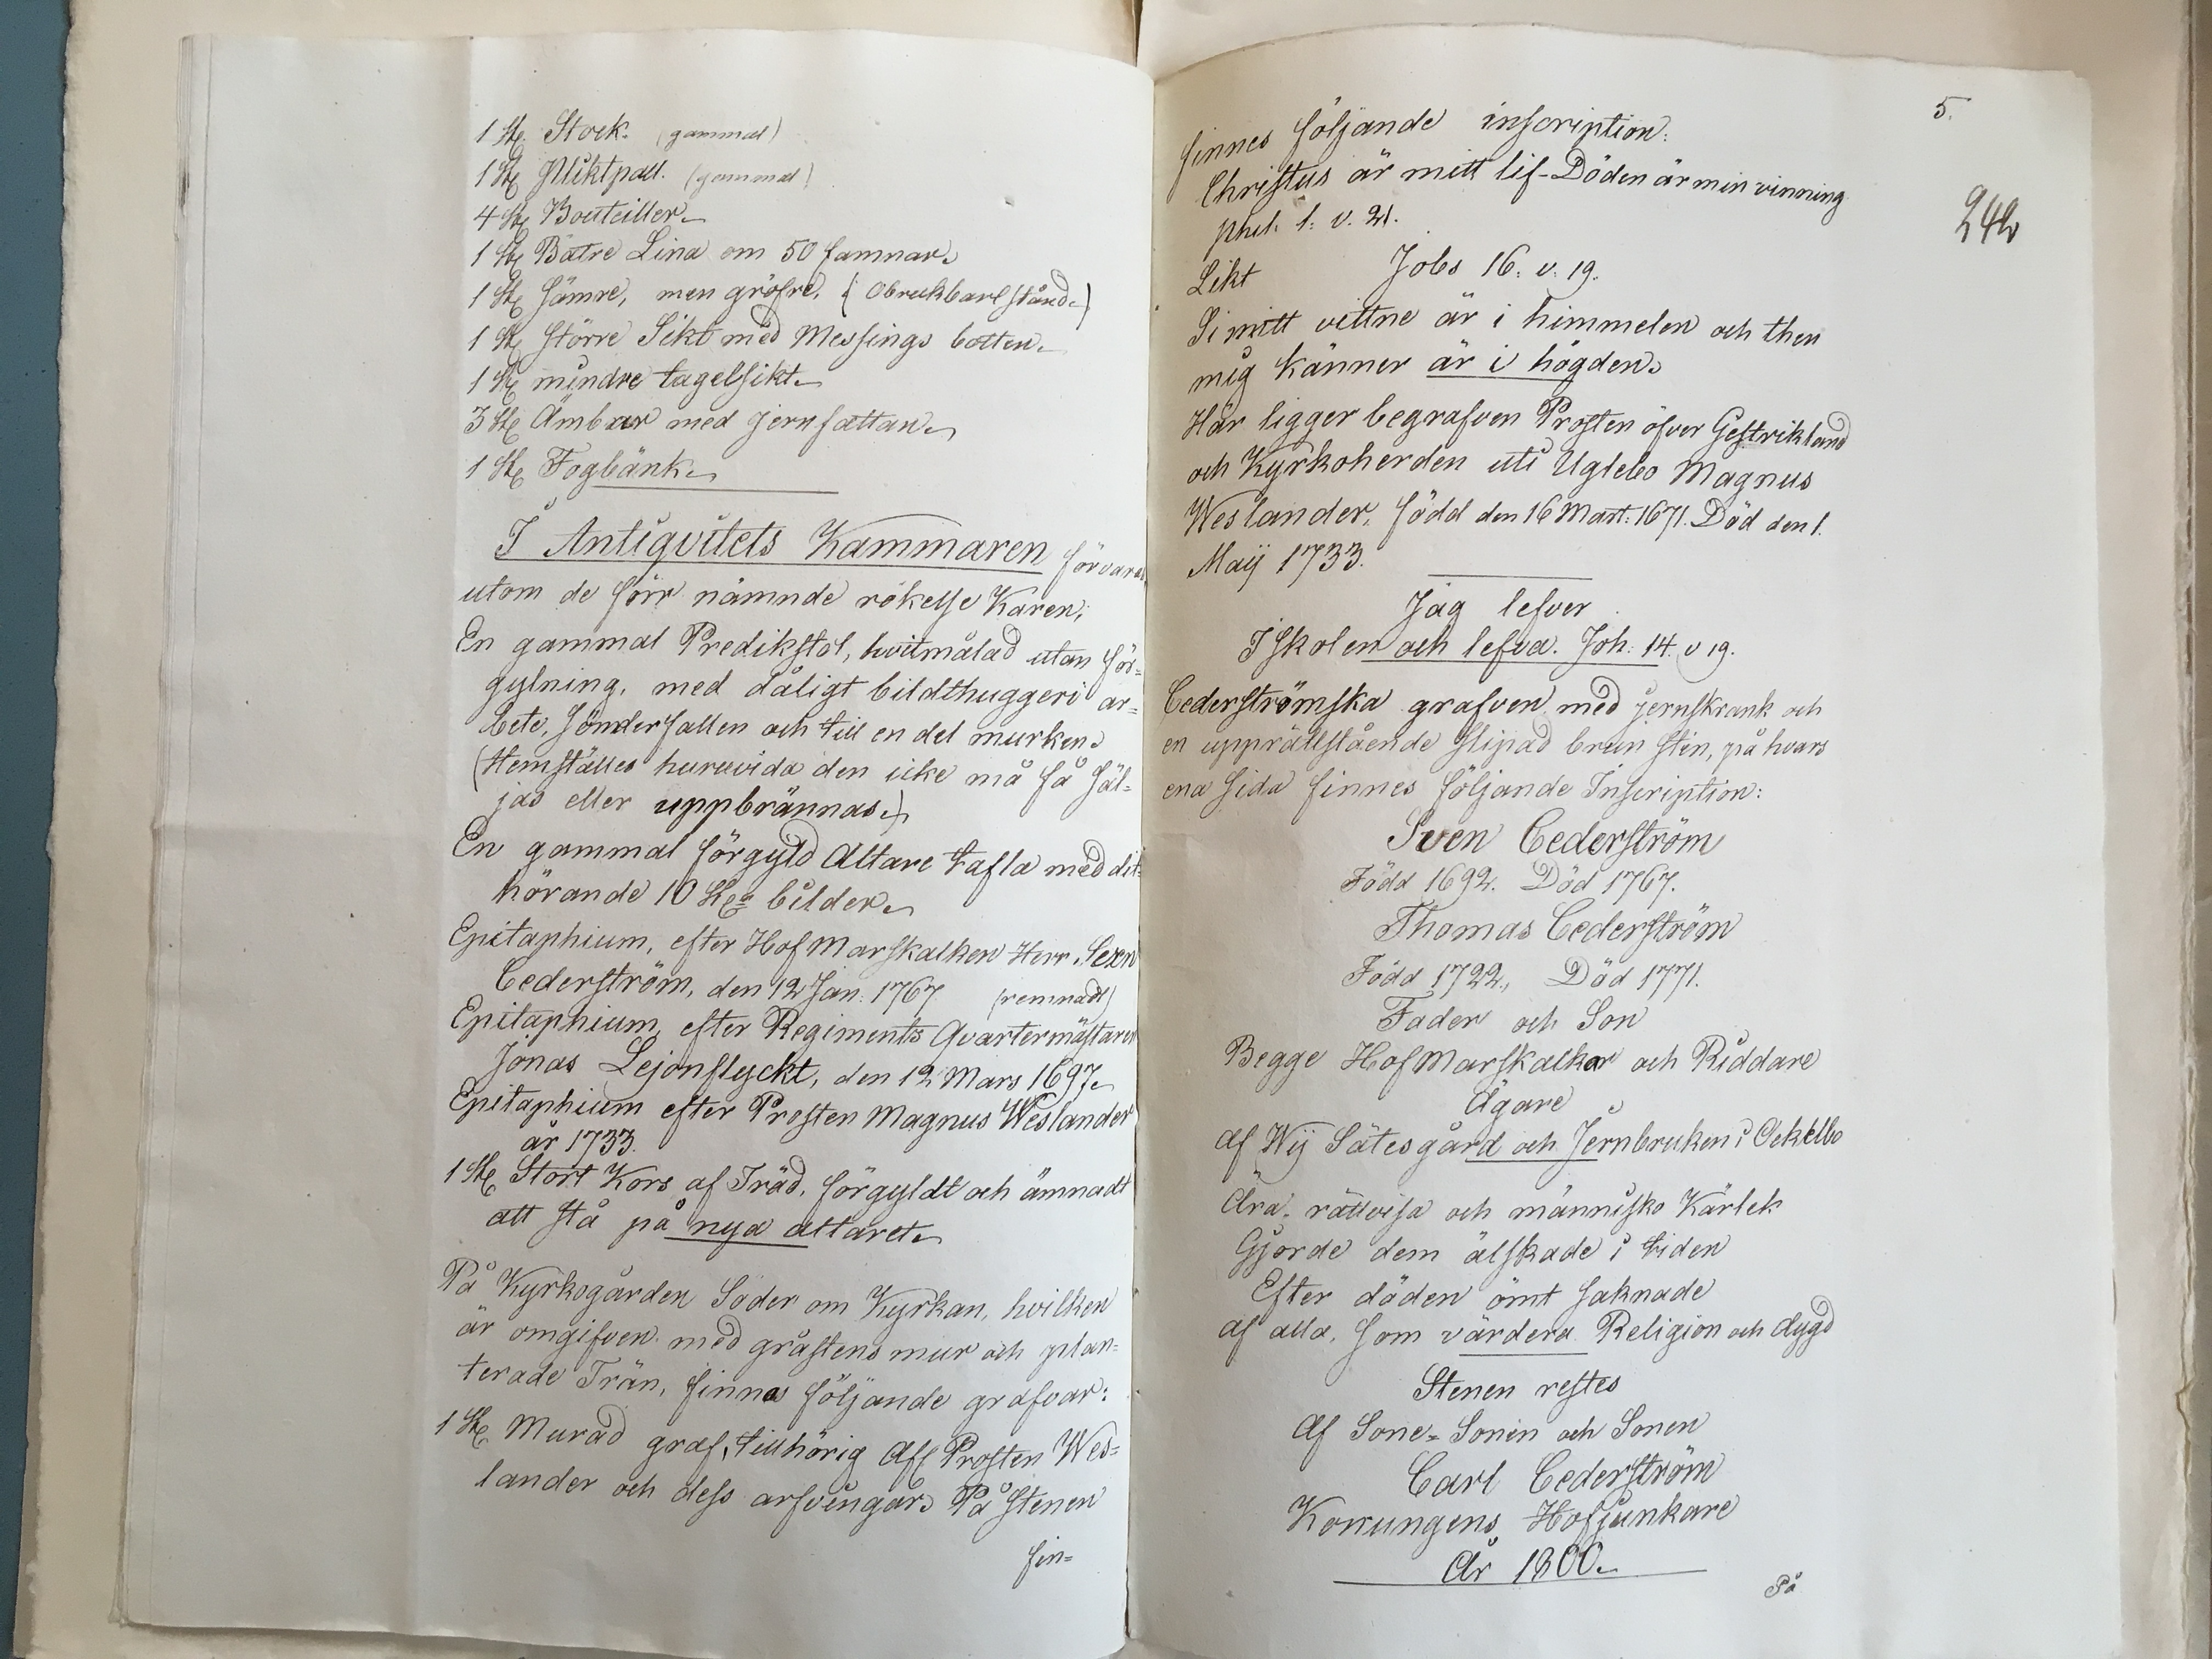 1 St. Stock. (gammal)
1 St. Pliktpall. (gammal)
4 St. Bouteiller.
1 St. Bätre Lina om 50 famnar.
1 St. sämre, men gröfre, (obrukbart stånd.)
1 St. större Sikt med Messings botten.
1 St. mindre tagelsikt.
3 St. Ämbar med jernfattan.
1 St. Fogbänk.
I Antiqvitets Kammaren förvaras
utom de förr nämnde rökelse Karen;
En gammal Predikstol, hvitmålad utan för=
gylning, med dåligt bildthuggeri ar=
bete, sönderfallen och till en del murken.
(Hemställes huruvida den icke må få säl=
jas eller uppbrännas.)
En gammal förgyld Altare tafla med dit
hörande 10 St. bilder.
Epitaphium, efter HofMarskalken Herr Sven
Cederström, den 12 Jan: 1767 (remnadt)
Epitaphium, efter Regiments Qvartermästaren
Jonas Lejonflyckt, den 12 Mars 1697.
Epitaphium efter Prosten Magnus Weslander
år 1733.
1 St. Stort Kors af Träd, förgyldt och ämnadt
att stå på nya altaret.
På Kyrkogården Söder om Kyrkan, hvilken
är omgifven med gråstens mur och plan=
terade Trän, finnas följande grafvar:
1 St. Murad graf, tillhörig Afl Prosten Wes=
lander och dess arfvingar. På stenen
fin=
5.
242
finnes följande inscription:
Christus är mitt lif - Döden är min vinning
phil. 1: v. 21.
Likt Jobs 16: v. 19.
Si mitt vittne är i himmelen och then
mig känner är i högden.
Här ligger begrafven Prosten öfver Gestrikland
och Kyrkoherden uti Uglebo Magnus
Weslander, född den 16 Mart: 1671. Död den 1.
Maÿ 1733.
Jag lefver
I skolen och lefva. Joh: 14. v 19.
Cederströmska grafven med jernskrank och
en upprättstående slipad brun sten, på hvars
ena sida finnes följande Inscription:
Sven Cederström
Född 1692. Död 1767.
Thomas Cederström
Född 1722., Död 1771.
Fader och Son
Begge HofMarskalkar och Riddare
Ägare
af Wij Sätesgård och Jernbruken i Ockelbo
Ära, rättvisa och människo Kärlek
Gjorde dem älskade i tiden
Efter döden ömt saknade
af alla, som värdera Religion och dygd
Stenen restes
Af Sone=Sonen och Sonen
Carl Cederström
Konungens Hofjunkare
År 1800.
På